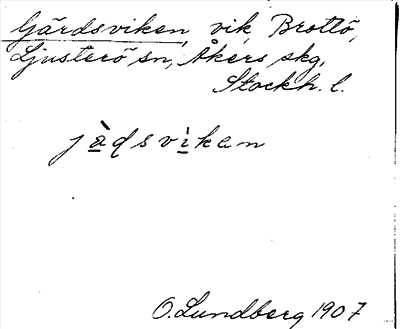 Gärdsviken, vik, Brottö,
Ljusterö sn, Åkers skg,
Stockh. l.
jàdsvìkan
O. Lundberg 1907